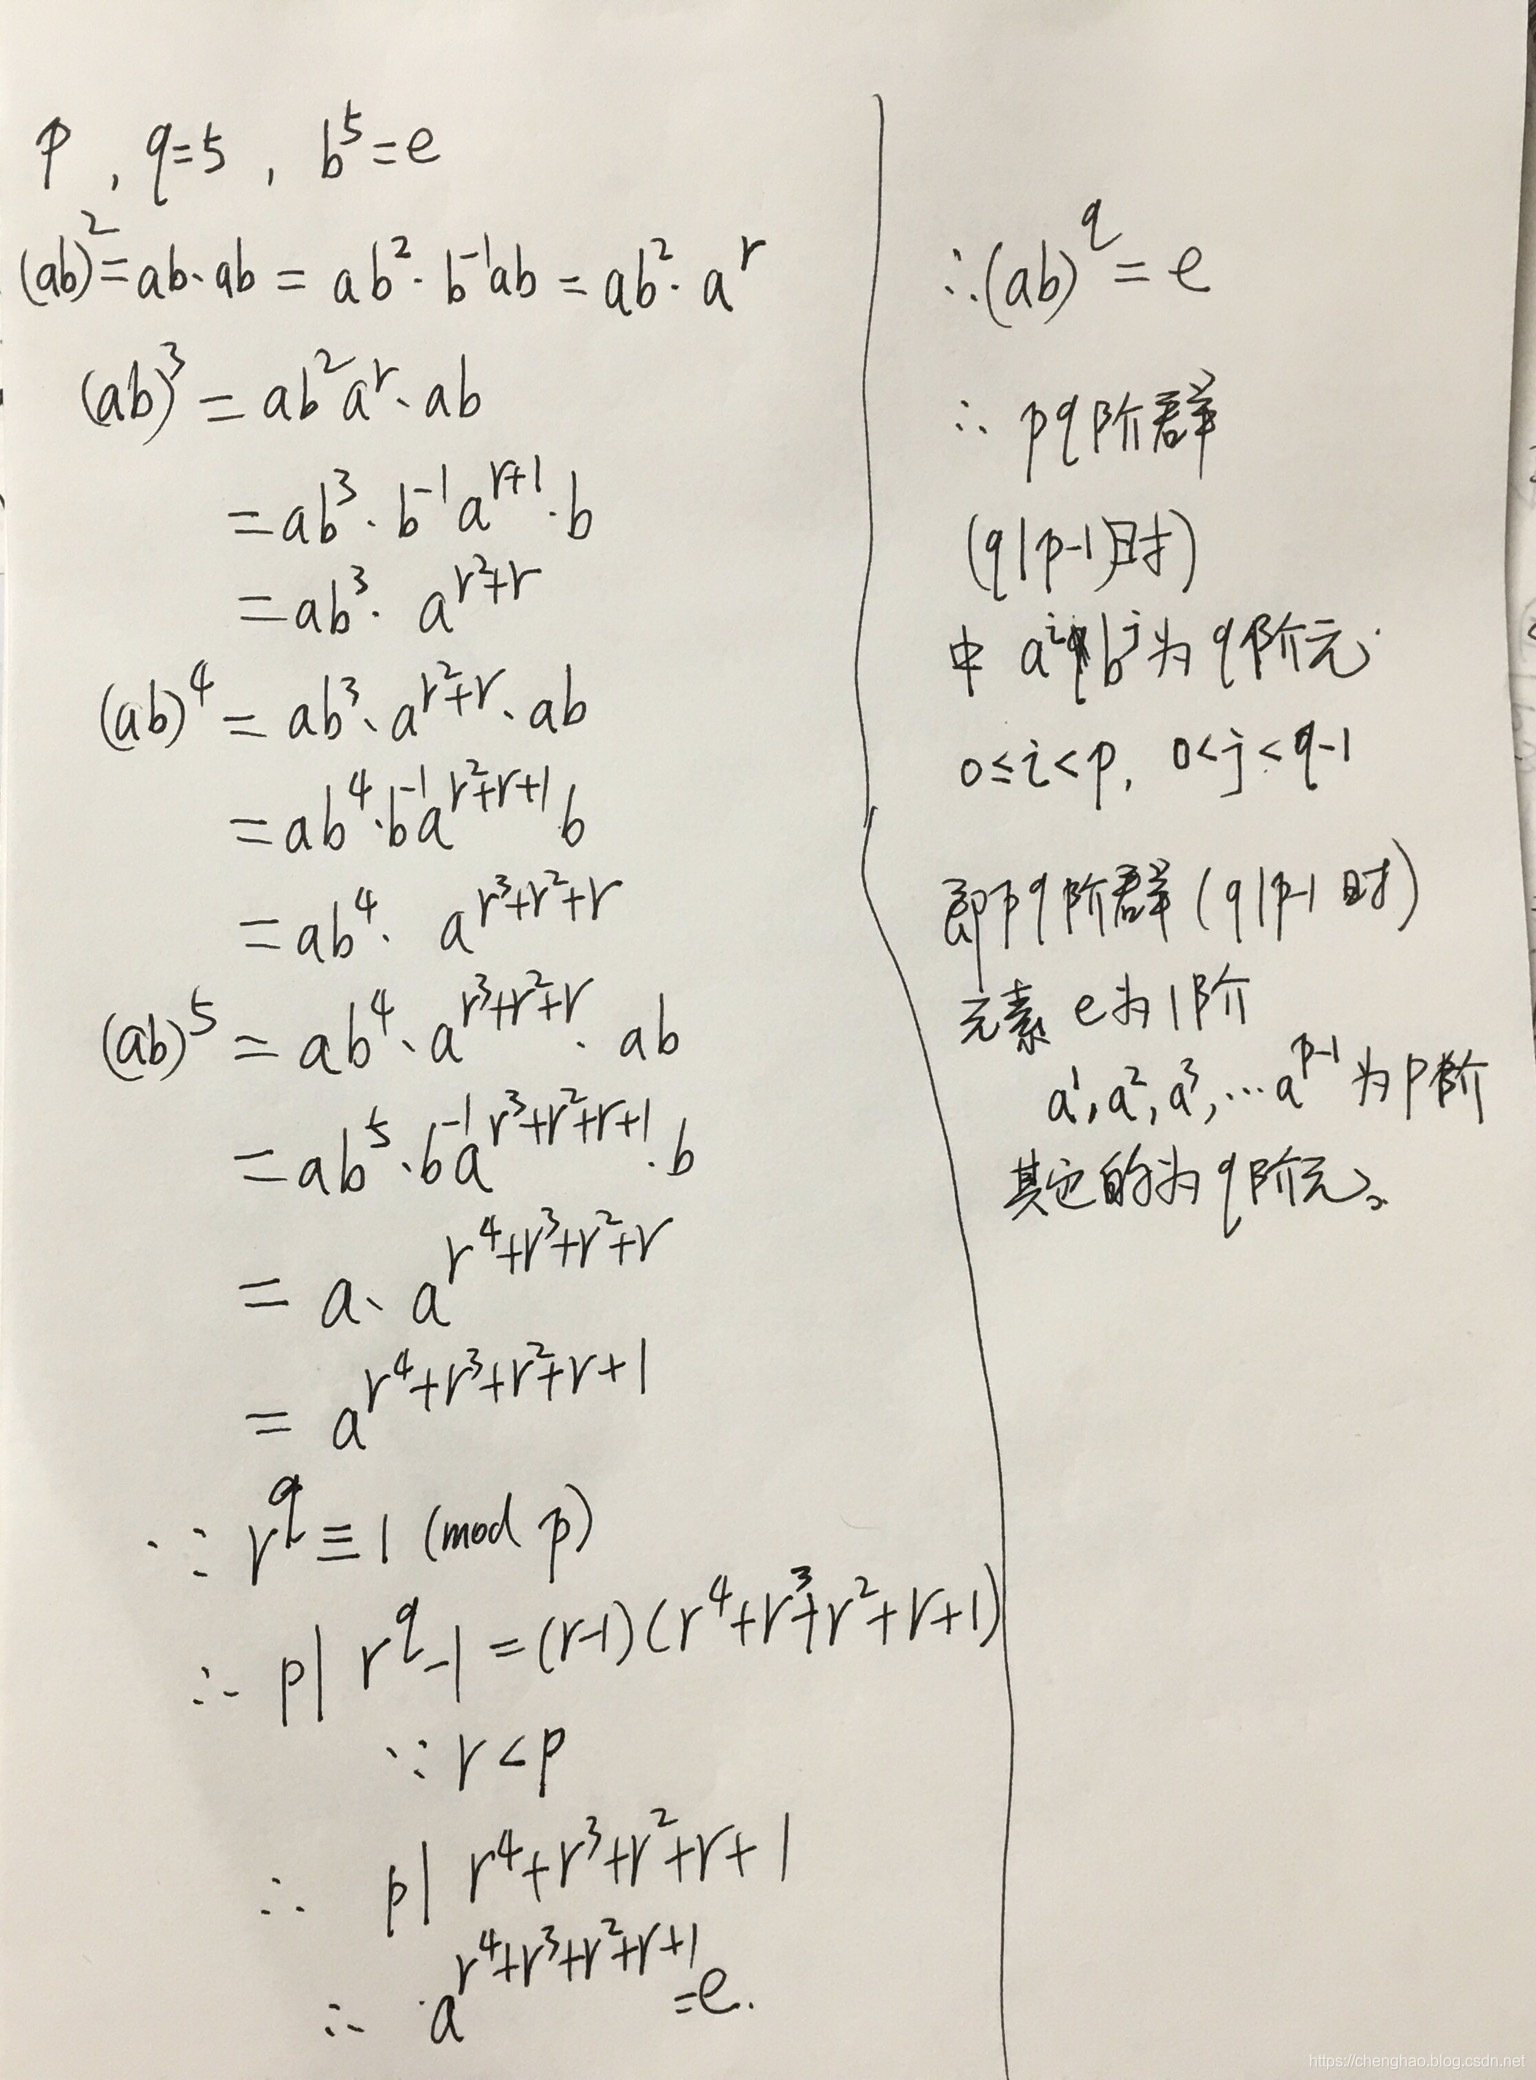 p , q=5 , b⁵=e
(ab)²=ab·ab = ab²·b⁻¹ab = ab²·aʳ
(ab)³ = ab²aʳ·ab
=ab³·b⁻¹a^{r+1}·b
=ab³·a^{r²+r}
(ab)⁴ = ab³·a^{r²+r}·ab
=ab⁴·b⁻¹a^{r²+r+1}b
=ab⁴·a^{r³+r²+r}
(ab)⁵ = ab⁴·a^{r³+r²+r}·ab
=ab⁵·b⁻¹a^{r³+r²+r+1}·b
= a·a^{r⁴+r³+r²+r}
= a^{r⁴+r³+r²+r+1}
∵ r^q≡1 (mod p)
∴ p| r^q-1=(r-1)(r⁴+r³+r²+r+1)
∵ r<p
∴ p| r⁴+r³+r²+r+1
∴ a^{r⁴+r³+r²+r+1}=e.
∴(ab)^q=e
∴ pq阶群
(q|p-1)时)
中 aⁱbʲ为q阶元.
0≤i<p, 0<j<q-1
即pq阶群(q|p-1时)
元素 e为1阶
a¹,a²,a³,…a^{p-1}为p阶
其它的为q阶元。
https://chenghao.blog.csdn.net